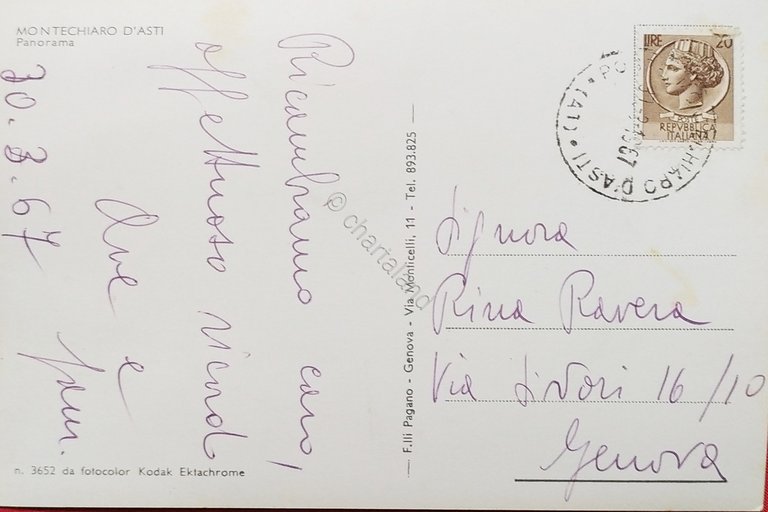 MONTECHIARO D'ASTI
Panorama
Ricambiamo caro,
affettuoso ricordo
Ave e
fam.
30.3.67
n. 3652 da fotocolor Kodak Ektachrome
F.lli Pagano - Genova - Via Monticelli, 11 - Tel. 893.825
© chartaland
LIRE 20
POSTE
REPVBBLICA
ITALIANA
D'ASTI * (AT) *
1967
Signora
Rina Ravera
Via Sivori 16/10
Genova